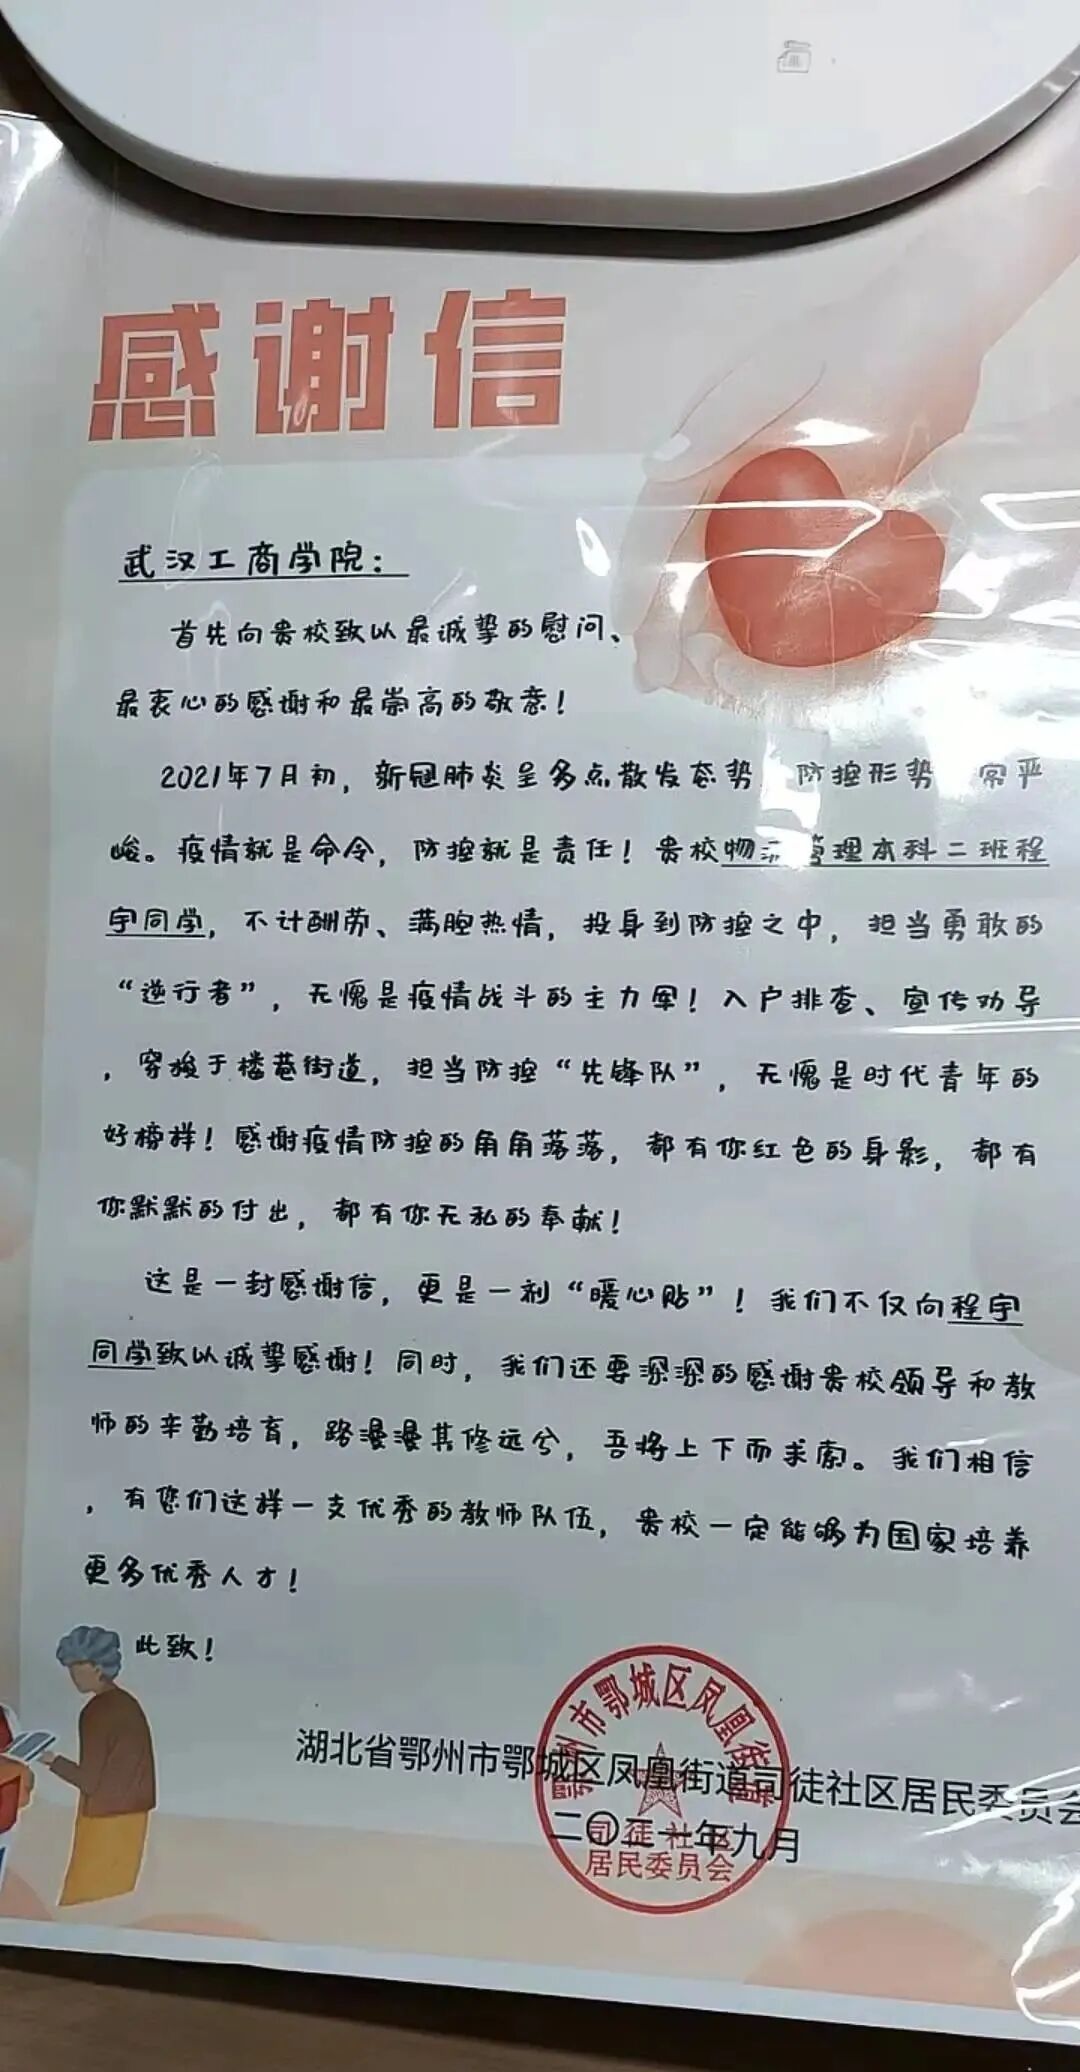 感谢信
武汉工商学院：
首先向贵校致以最诚挚的慰问、
最衷心的感谢和最崇高的敬意！
2021年7月初，新冠肺炎呈多点散发态势 防控形势 常严
峻。疫情就是命令，防控就是责任！贵校物 管理本科二班程
宇同学，不计酬劳、满腔热情，投身到防控之中，担当勇敢的
“逆行者”，无愧是疫情战斗的主力军！入户排查、宣传劝导
，穿梭于楼巷街道，担当防控“先锋队”，无愧是时代青年的
好榜样！感谢疫情防控的角角落落，都有你红色的身影，都有
你默默的付出，都有你无私的奉献！
这是一封感谢信，更是一剂“暖心贴”！我们不仅向程宇
同学致以诚挚感谢！同时，我们还要深深的感谢贵校领导和教
师的辛勤培育，路漫漫其修远兮，吾将上下而求索。我们相信
，有您们这样一支优秀的教师队伍，贵校一定能够为国家培养
更多优秀人才！
此致！
湖北省鄂州市鄂城区凤凰街道司徒社区居民委员会
二〇二一年九月
鄂州市鄂城区凤凰街道
司徒社区
居民委员会